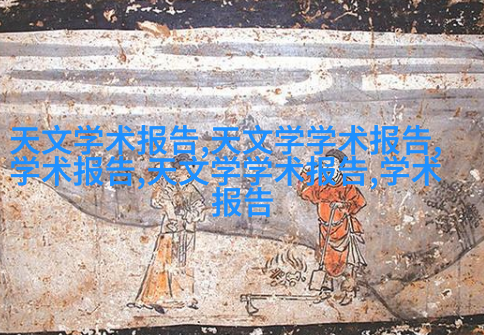 天文学术报告,天文学学术报告,
学术报告,天文学学术报告,学术
报告